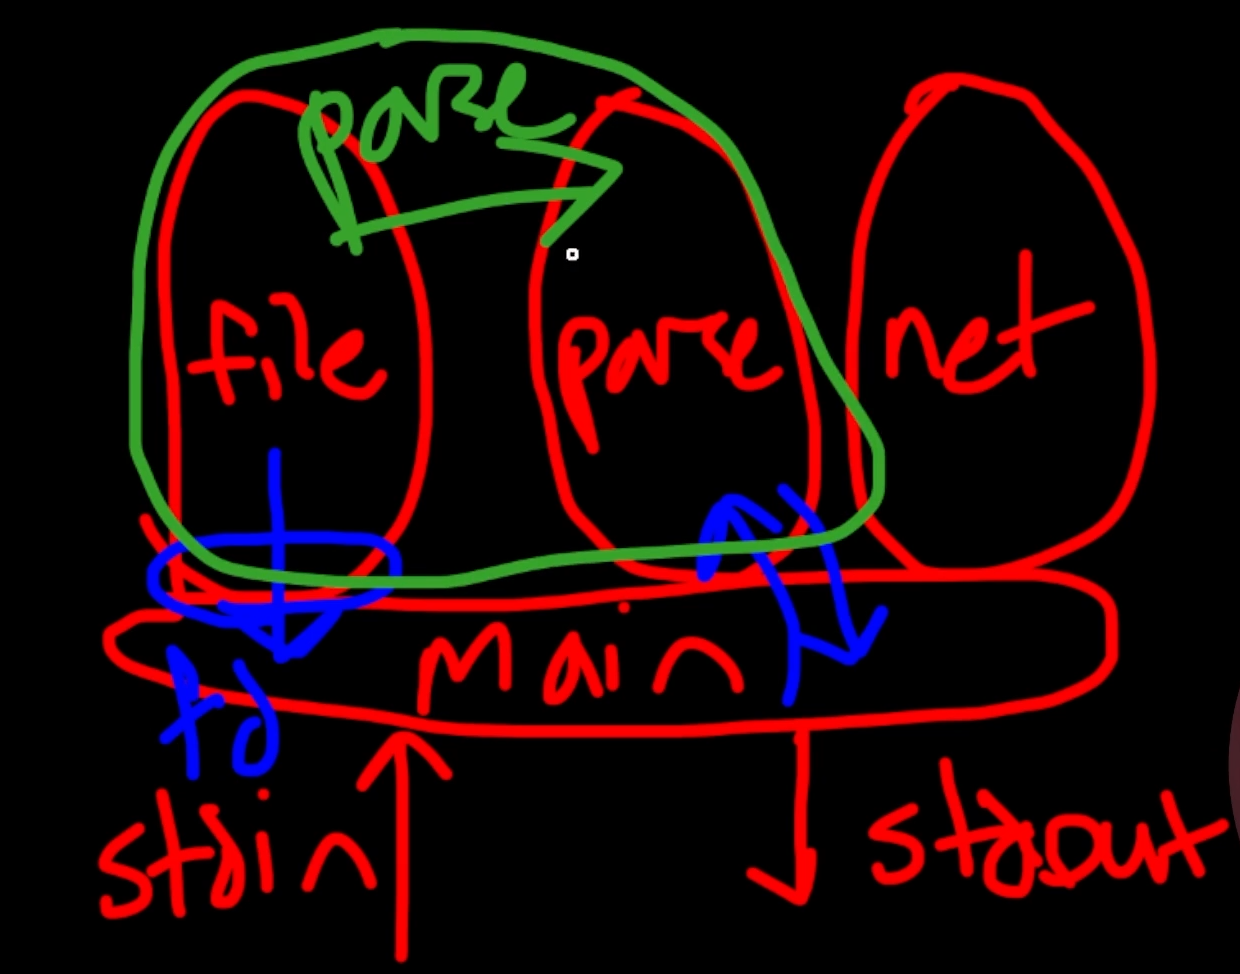 parse
file
parse
net
main
fd
stdin
stdout